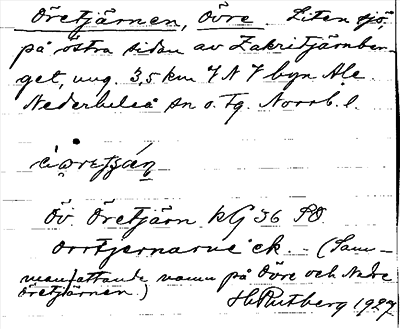 Öretjärnen, Övre. Liten sjö,
på östra sidan av Zakritjärnber-
get, ung. 3,5 km N byn Ale.
Nederluleå sn o. Tg. Norrb. l.
Öv. Öretjärn kG 56 SO
orrtjernarne ek. - (Sam-
manfattande namn på Övre och Nedre
Öretjärnen.)
H. Rutberg 1927